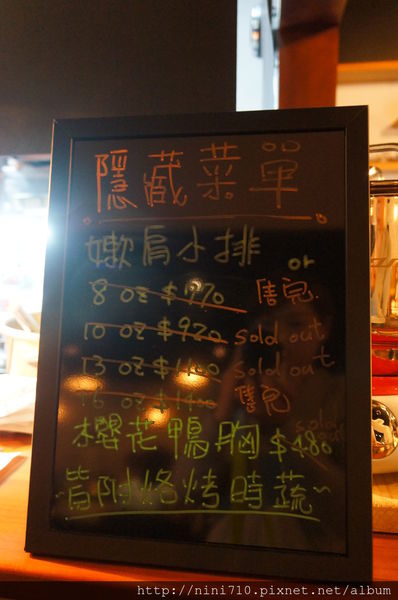 隱藏菜單
嫩肩小排 or
8 oz $770 售完
10 oz $920 sold out
13 oz $1100 sold out
16 oz $1400 售完
櫻花鴨胸 $480 sold out
~皆附烙烤時蔬~
http://nini710.pixnet.net/album